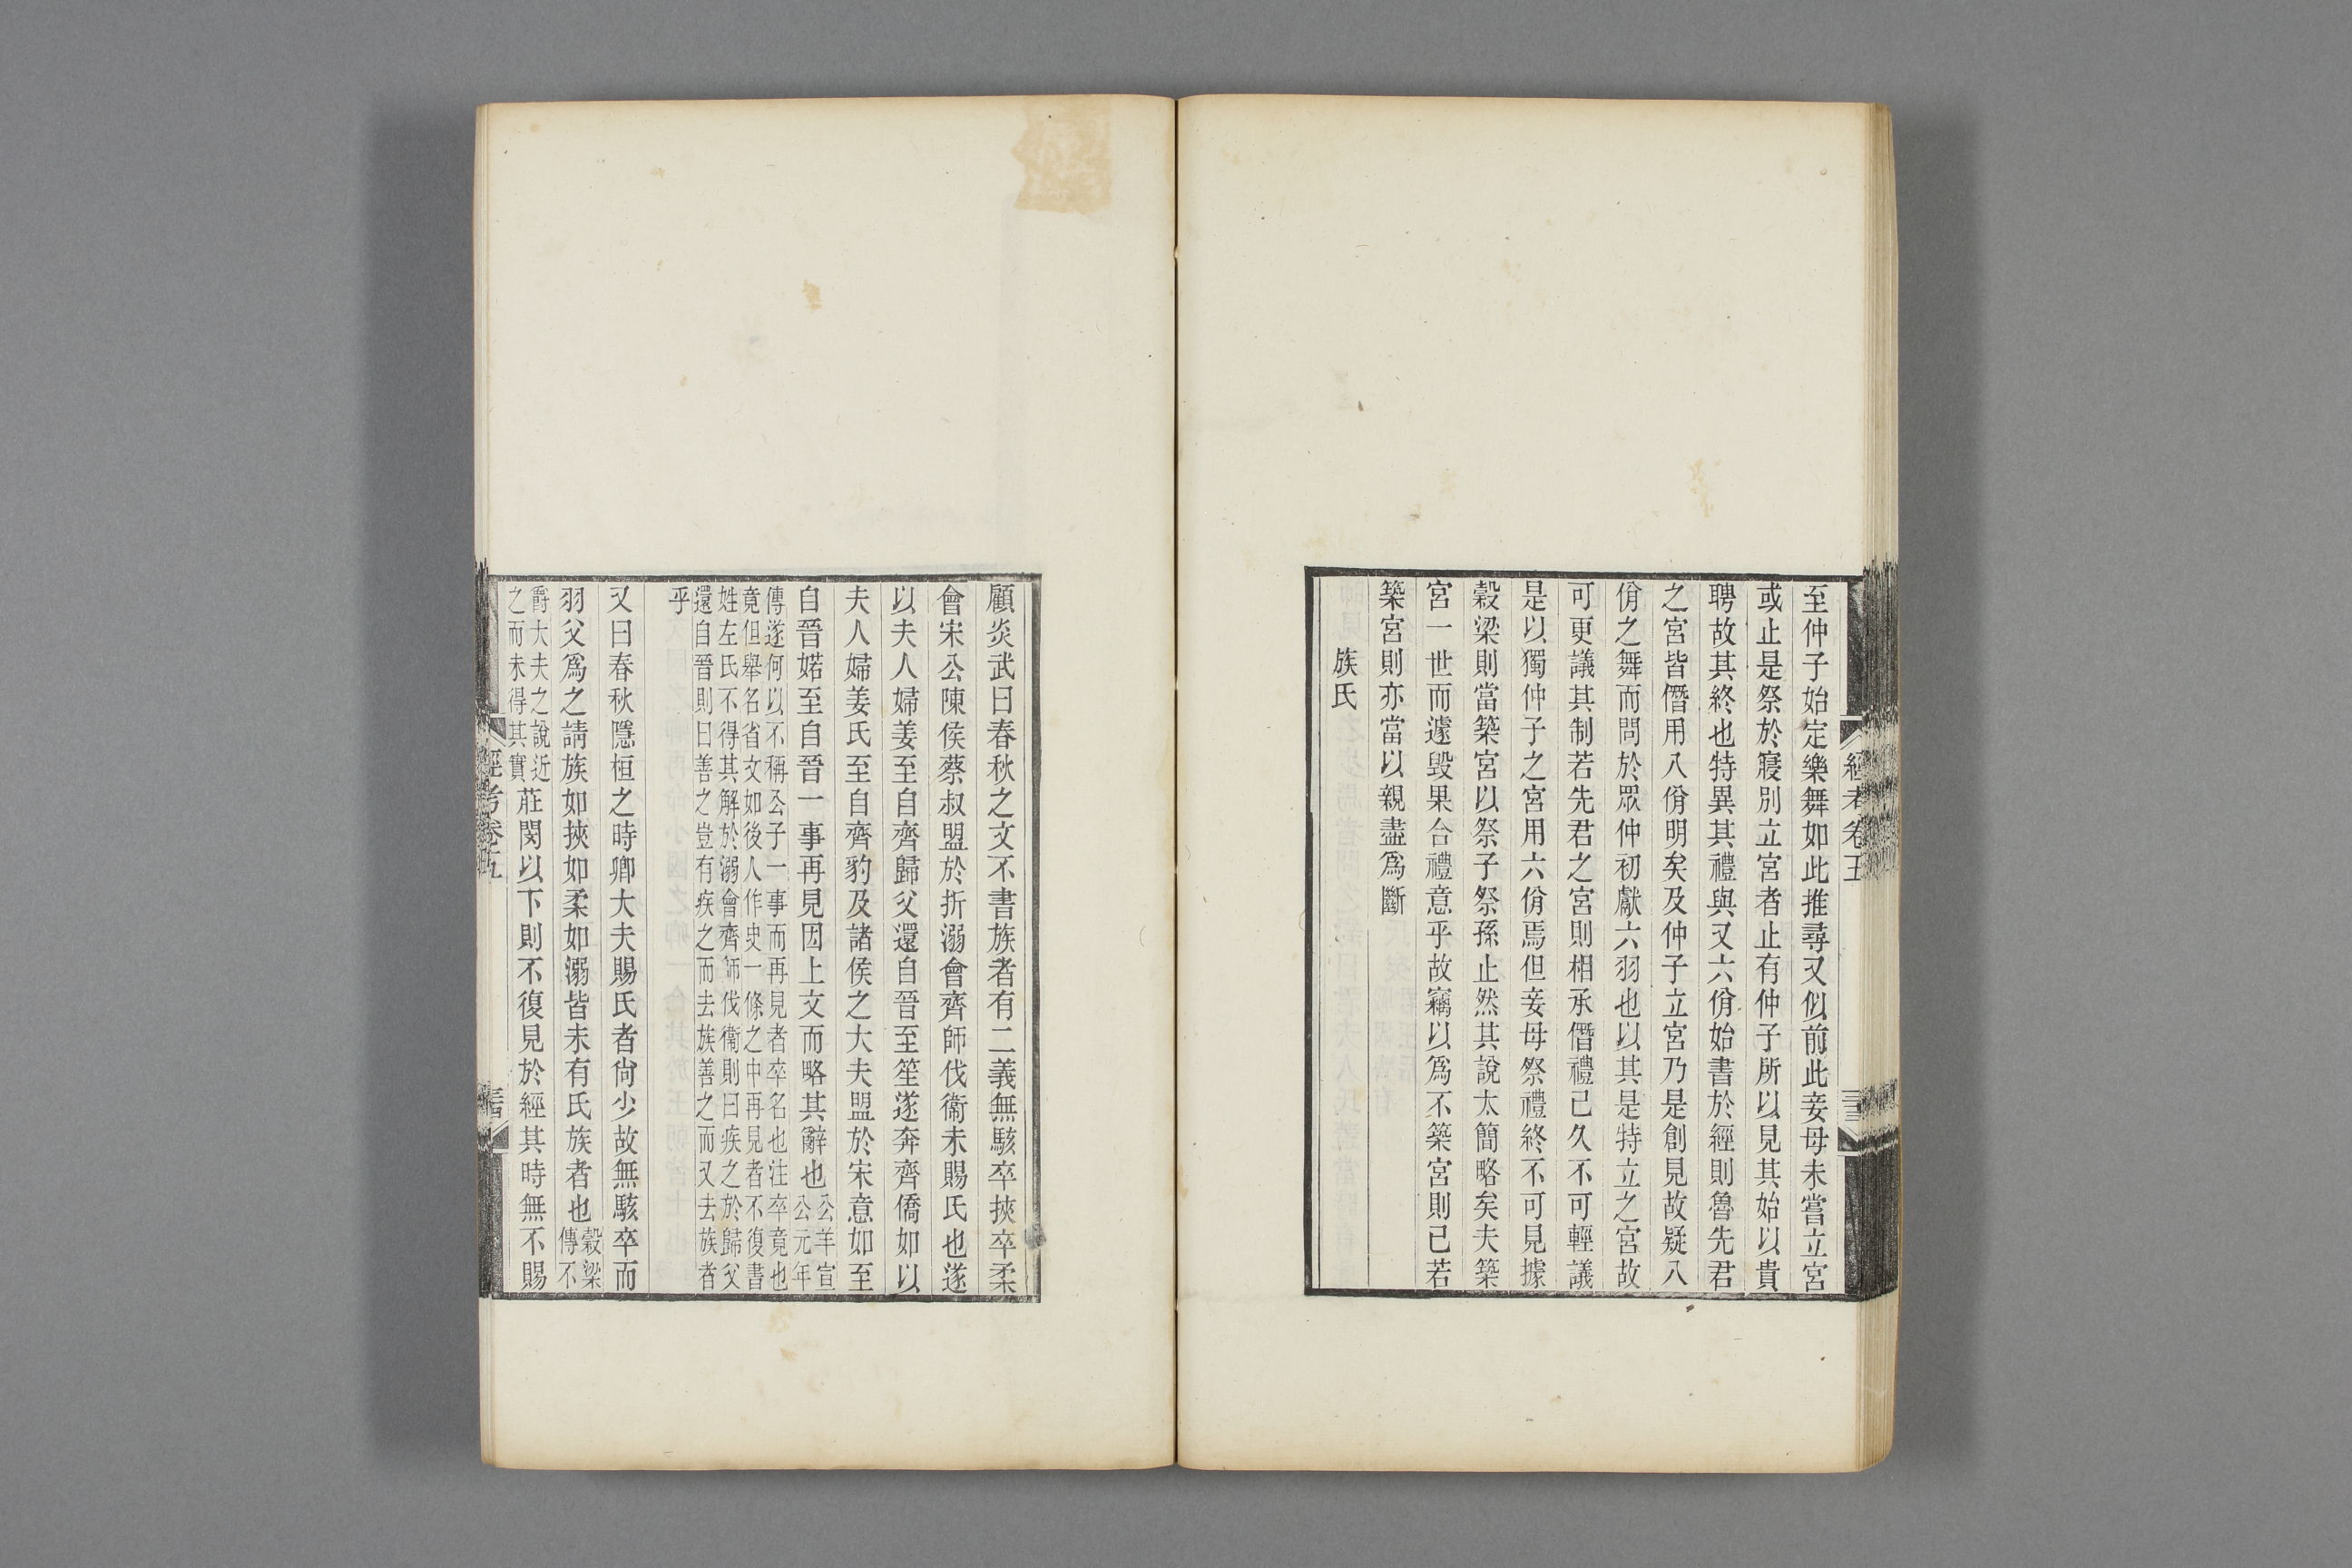 至仲子始定樂舞如此推尋又似前此妾母未嘗立宮
或止是祭於寢別立宮者止有仲子所以見其始以貴
聘故其終也特異其禮與又六佾始書於經則魯先君
之宮皆僭用八佾明矣及仲子立宮乃是創見故疑八
佾之舞而問於眾仲初獻六羽也以其是特立之宮故
可更議其制若先君之宮則相承僭禮己久不可輕議
是以獨仲子之宮用六佾焉但妾母祭禮終不可見據
穀梁則當築宮以祭子祭孫止然其說太簡略矣夫築
宮一世而遽毀果合禮意乎故竊以爲不築宮則已若
築宮則亦當以親盡爲斷
族氏
經考卷五
顧炎武曰春秋之文不書族者有二義無駭卒挾卒柔
會宋公陳侯蔡叔盟於折溺會齊師伐衞未賜氏也遂
以夫人婦姜至自齊歸父還自晉至笙遂奔齊僑如以
夫人婦姜氏至自齊豹及諸侯之大夫盟於宋意如至
自晉婼至自晉一事再見因上文而略其辭也公羊宣公元年
傳遂何以不稱公子一事而再見者卒名也注卒竟也
竟但舉名省文如後人作史一條之中再見者不復書
姓左氏不得其解於溺會齊師伐衞則曰疾之於歸父
還自晉則曰善之豈有疾之而去族善之而又去族者
乎
又曰春秋隱桓之時卿大夫賜氏者尙少故無駭卒而
羽父爲之請族如挾如柔如溺皆未有氏族者也穀梁傳不
爵大夫之說近之而未得其實莊閔以下則不復見於經其時無不賜
經考卷五